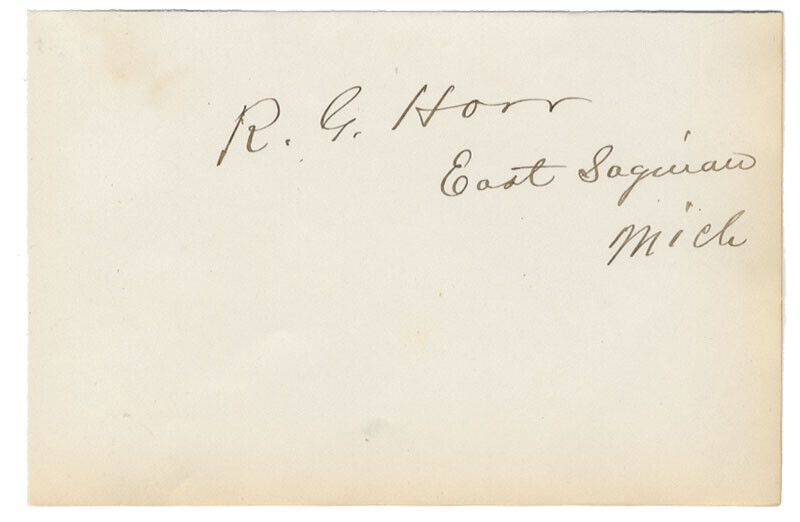 R. G. Horr
East Saginaw
Mich